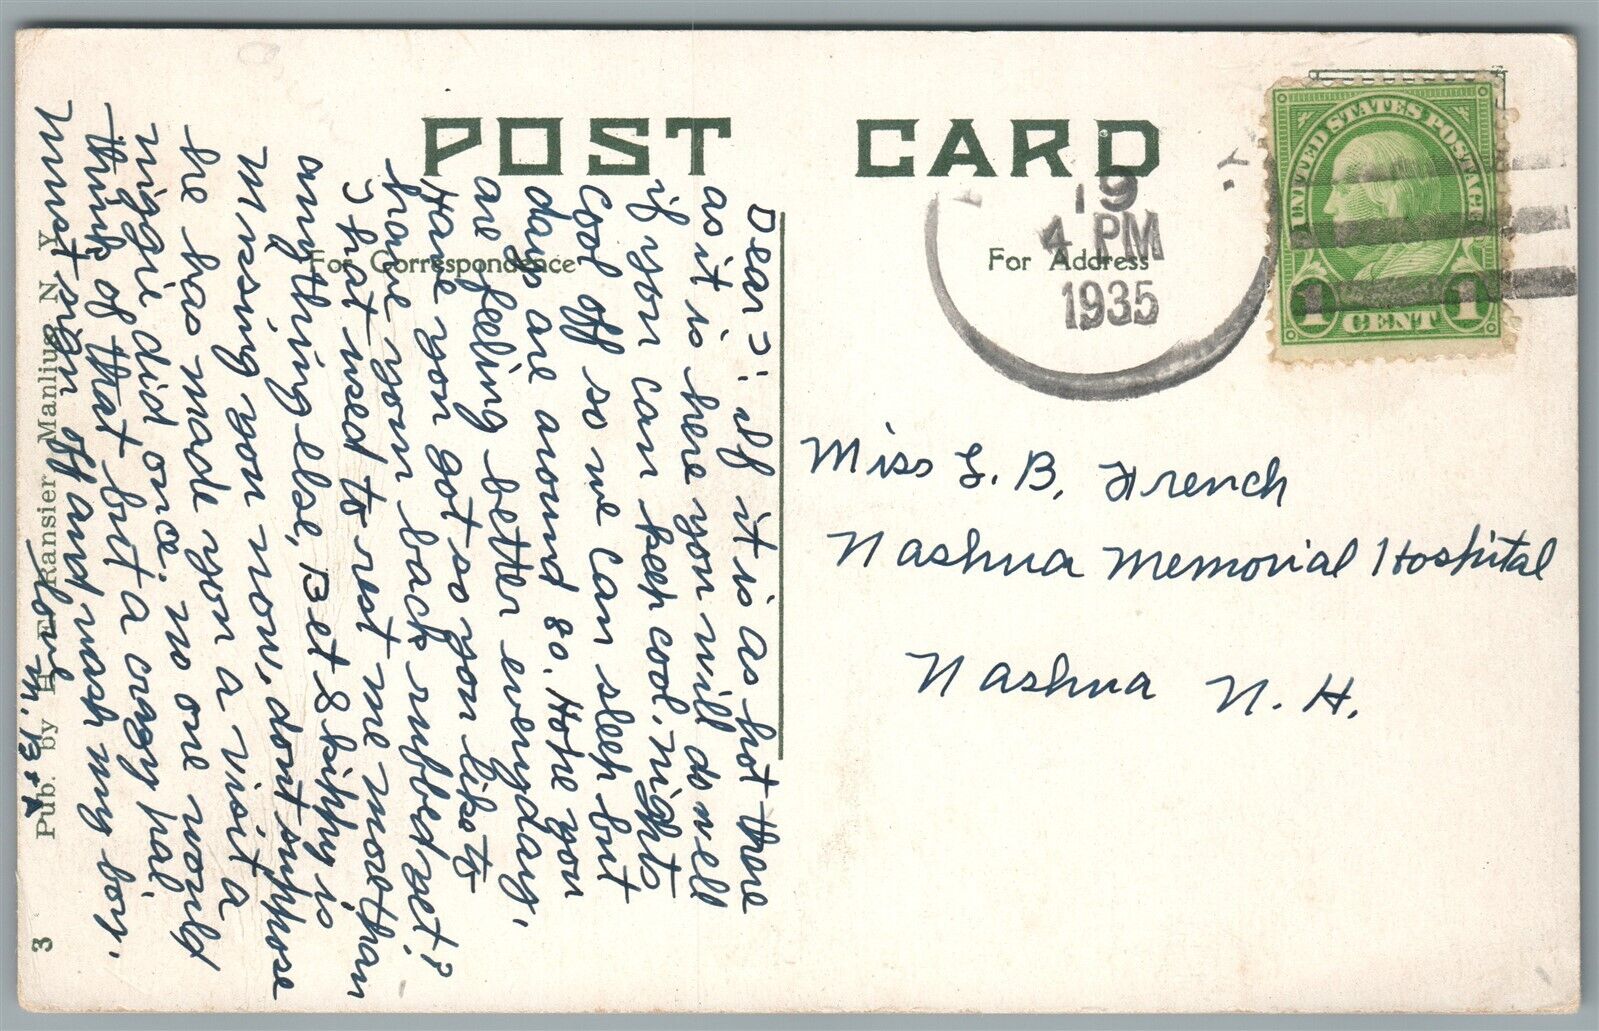 POST CARD
For Correspondence
For Address
19
4 PM
1935
UNITED STATES POSTAGE
1 CENT 1
Miss L. B. French
Nashua Memorial Hospital
Nashua N. H.
Dear : If it is as hot there
as it is here you will do well
if you can keep cool. Nights
cool off so we can sleep but
days are around 80. Hope you
are feeling better everyday.
Have you got so you like to
have your back rubbed yet?
That used to rest me more than
anything else, Bet Skippy is
missing you now, dont suppose
he has made you a visit a
niggie did once. no one would
think of that but a crazy pal
must sign off and wash my boy.
Love M. B.
Pub. by H. E. Ransier Manlius N. Y.
3